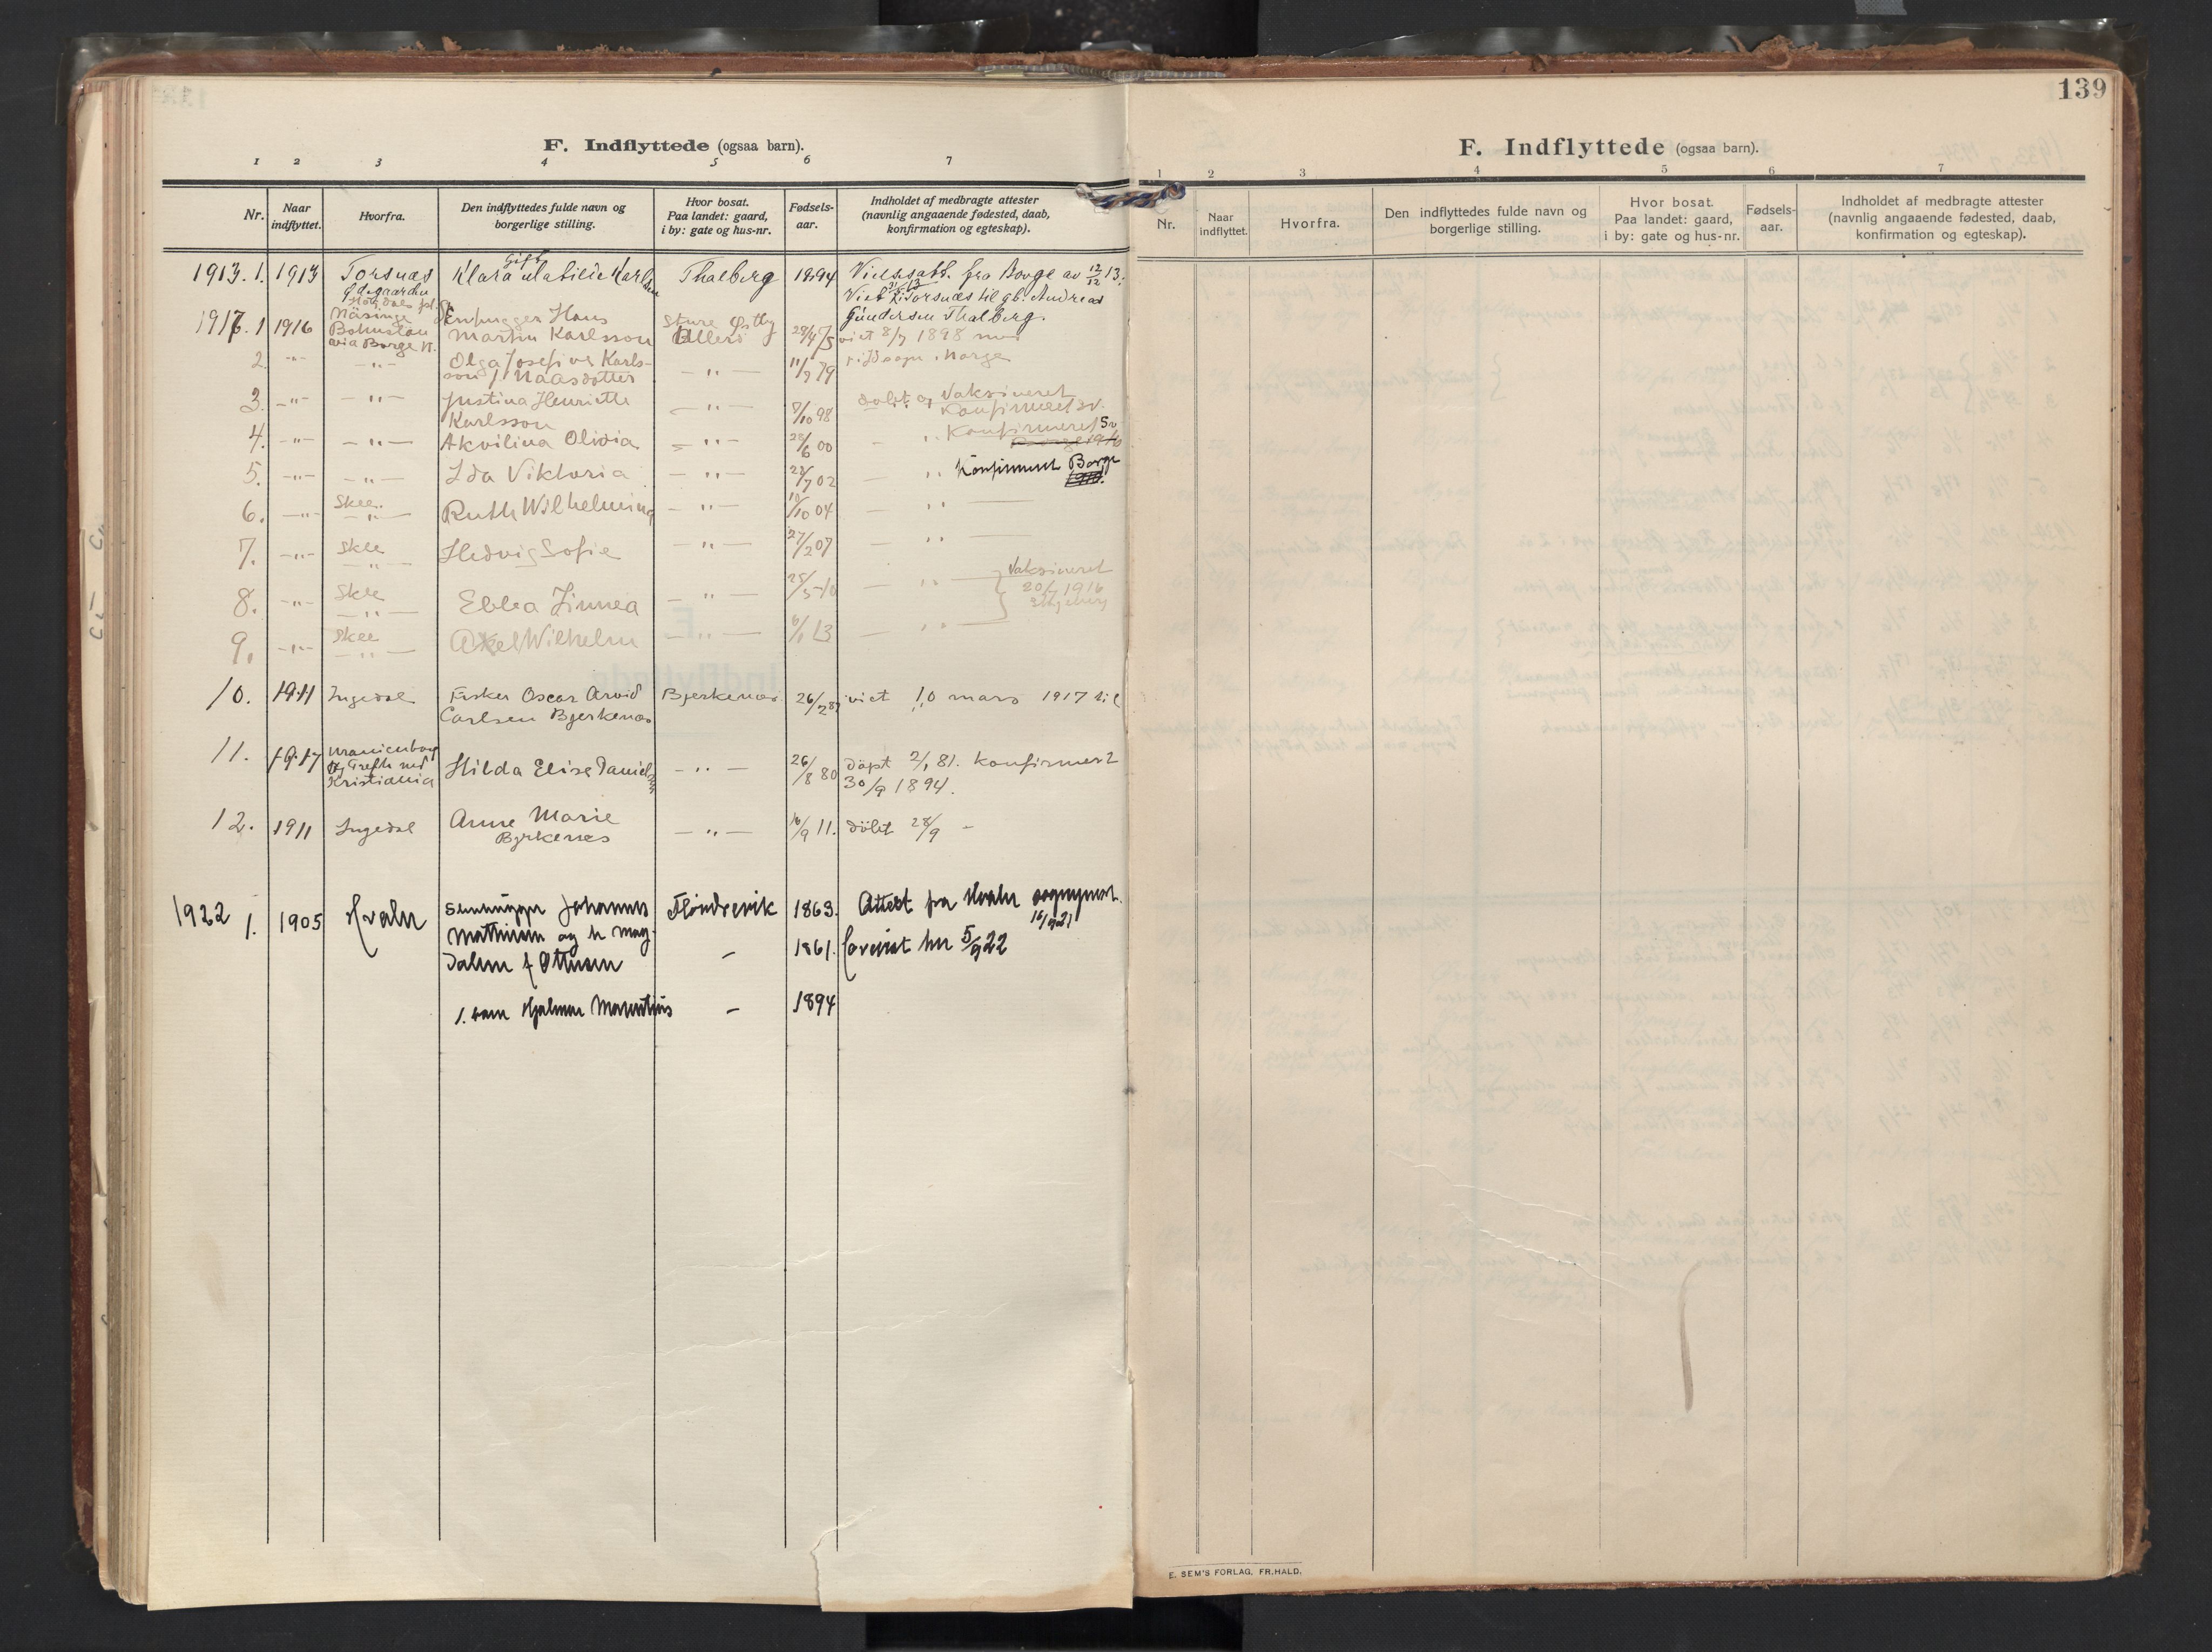 139
F. Indflyttede (ogsaa barn).
1 2 3 4 5 6 7
Nr. Naar indflyttet. Hvorfra. Den indflyttedes fulde navn og borgerlige stilling. Hvor bosat. Paa landet: gaard, i by: gate og hus-nr. Fødsels-aar. Indholdet af medbragte attester (navnlig angaaende fødested, daab, konfirmation og egteskap).
gift
1913. 1. 1913 Torsnæs Klara Matilde Karlsen Thalberg 1894 Vielsesatt. fra Borge av 12/12 13.
Viet Torsnæs til gb. Andreas
Näsinge Stenhugger Hans Gundersen Thalberg.
1917. 1 1916 Bohuslän Martin Karlsson Ullerö 29/4 75 viet 8/7 1898 med
via Borge N.
2. -"- -"- Olga Josefine Karls- -"- 11/9 79 i Norge
son f. Klaasdotter
3. -"- -"- Justina Henriette -"- 7/10 98 döbt og Vaksineret
Karlsson Konfirmeret
4. -"- -"- Akvilina Olivia -"- 28/6 00 - " Konfirmeret
5. -"- -"- Ida Viktoria -"- 22/7 02 - " Konfirmeret Borge
6. -"- Skee -"- Ruth Wilhelmina -"- 10/10 04 - "
7. -"- Skee -"- Hedvig Sofie -"- 27/2 07 - "
8. -"- Skee -"- Ebba Linnea -"- 25/5 10 - " Vaksineret
1916
9. -"- Skee -"- Axel Wilhelm -"- 6/1 13 - "
10. 1911 Ingedal Fisker Oscar Arvid Bjerkenæs 26/2 87 viet 10 mars 1917 til
Carlsen Bjerkenæs
11. 1917 Uranienborg Kristiania Hilda Elise Danielsen -"- 26/8 80 döpt 2/1 81. Konfirmert
30/9 1894.
12. 1911 Ingedal Anne Marie -"- 16/9 11. döbt 28/9 -
Bjerkenes
1922 1. 1905 Hvaler Stenhugger Johannes Flöndrevik 1863. Attest fra Hvaler sogneprest.
Mathisen og h. Mag- 16/9 21
dalene f. Ottesen - 1861. forevist her 5/9 22
1. barn Hjalmar Mauritius - 1894
F. Indflyttede (ogsaa barn).
1 2 3 4 5 6 7
Nr. Naar indflyttet. Hvorfra. Den indflyttedes fulde navn og borgerlige stilling. Hvor bosat. Paa landet: gaard, i by: gate og hus-nr. Fødsels-aar. Indholdet af medbragte attester (navnlig angaaende fødested, daab, konfirmation og egteskap).
E. SEM'S FORLAG, FR.HALD.